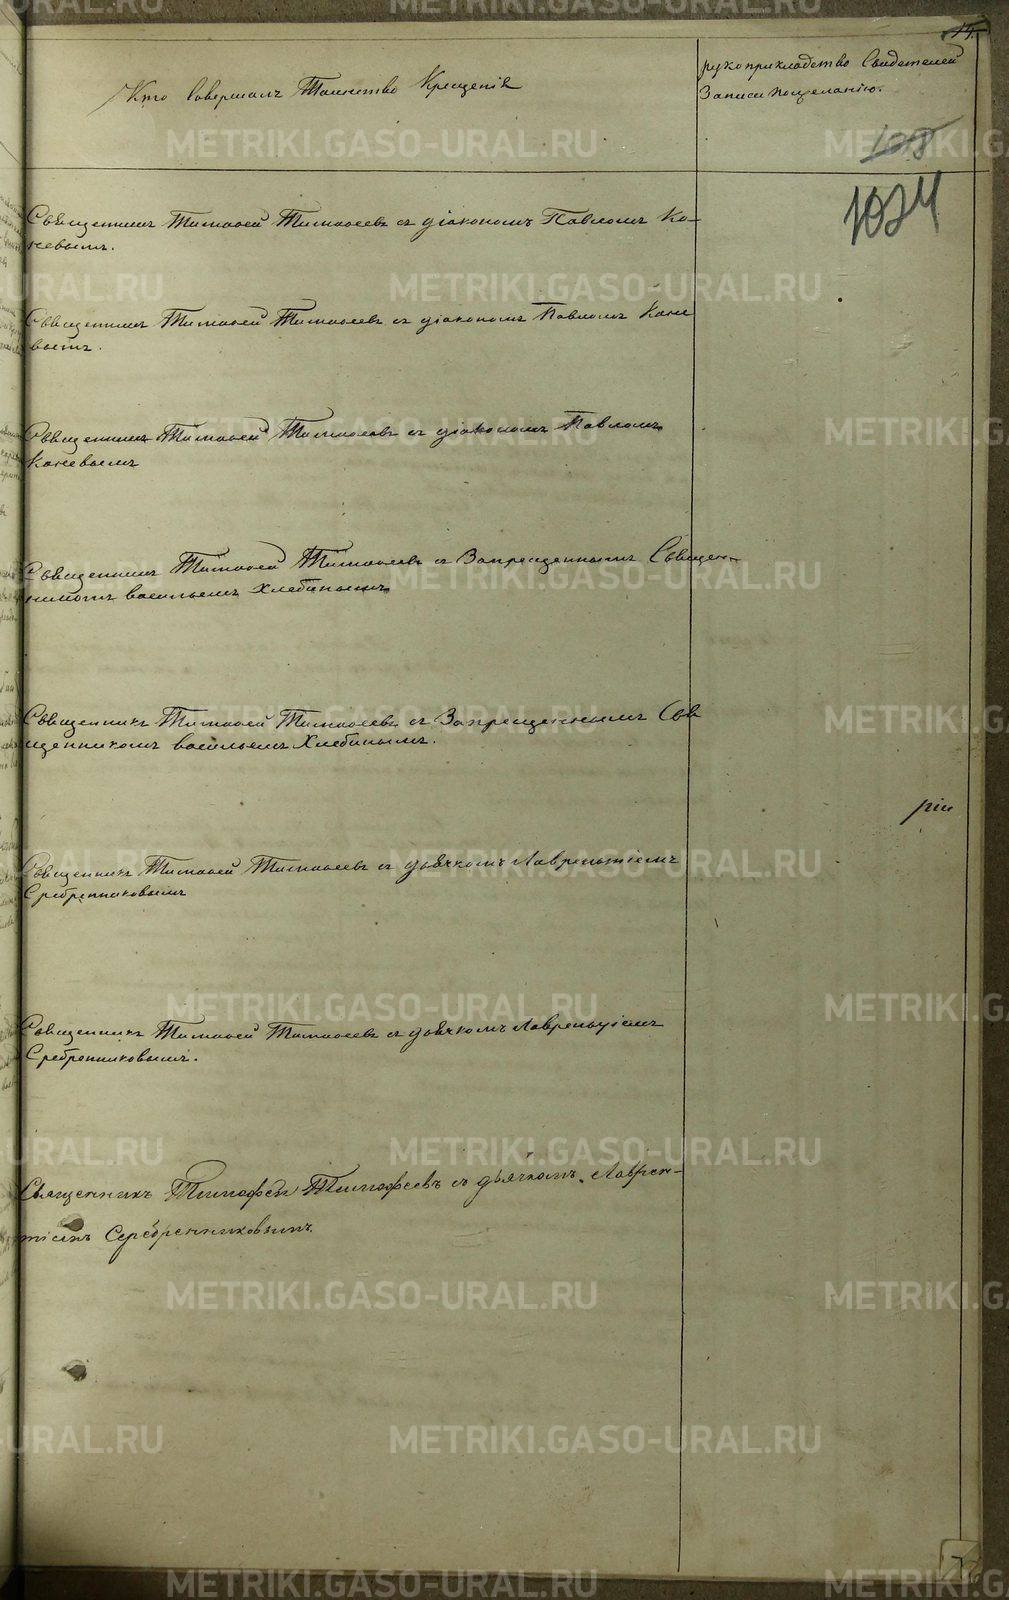 Кто Совершалъ Таинство Крещенія
рукоприкладство Свидетелей
Записи пожеланію.
1018
1024
Священникъ Тимофей Тимофеевъ съ діакономъ Павломъ Ка-
невымъ.
Священникъ Тимофей Тимофеевъ съ діакономъ Павломъ Кане
вымъ.
Священникъ Тимофей Тимофеевъ съ діакономъ Павломъ
Каневымъ
Священникъ Тимофей Тимофеевъ съ Запрещеннымъ Священ-
никомъ васильемъ Хлебинымъ
Священникъ Тимофей Тимофеевъ съ Запрещеннымъ Свя
щенникомъ васильемъ Хлебинымъ.
ріи
Священникъ Тимофей Тимофеевъ съ дьячкомъ Лаврентіемъ
Сребренниковымъ
Священникъ Тимофей Тимофеевъ съ дьячкомъ Лаврентіемъ
Сребренниковымъ.
Священникъ Тимофей Тимофеевъ съ дьячкомъ Лаврен-
тіемъ Серебренниковымъ.
METRIKI.GASO-URAL.RU